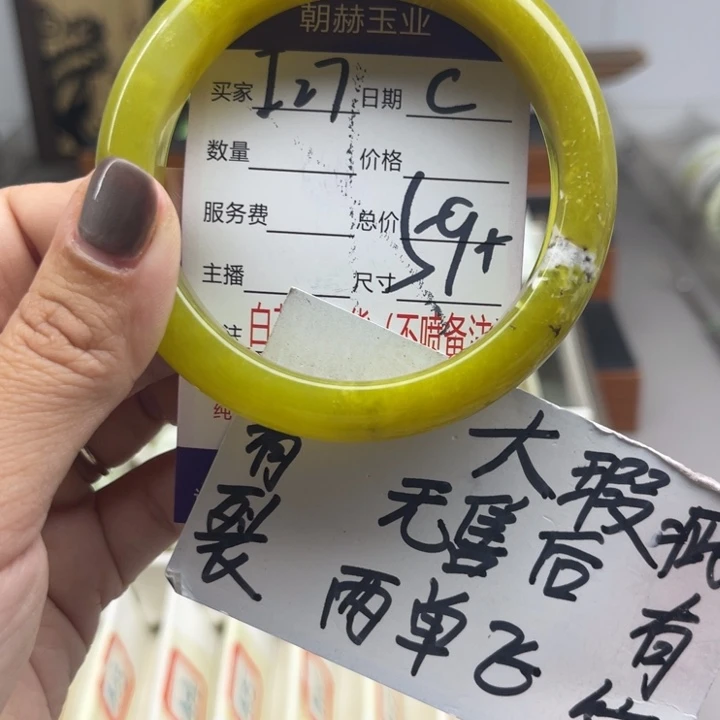 朝赫玉业
买家 I27 日期 C
数量 价格
服务费 总价
59+
主播 尺寸
注 白 (不喷备注
纯
有裂
大瑕疵
无售后 有
两单飞